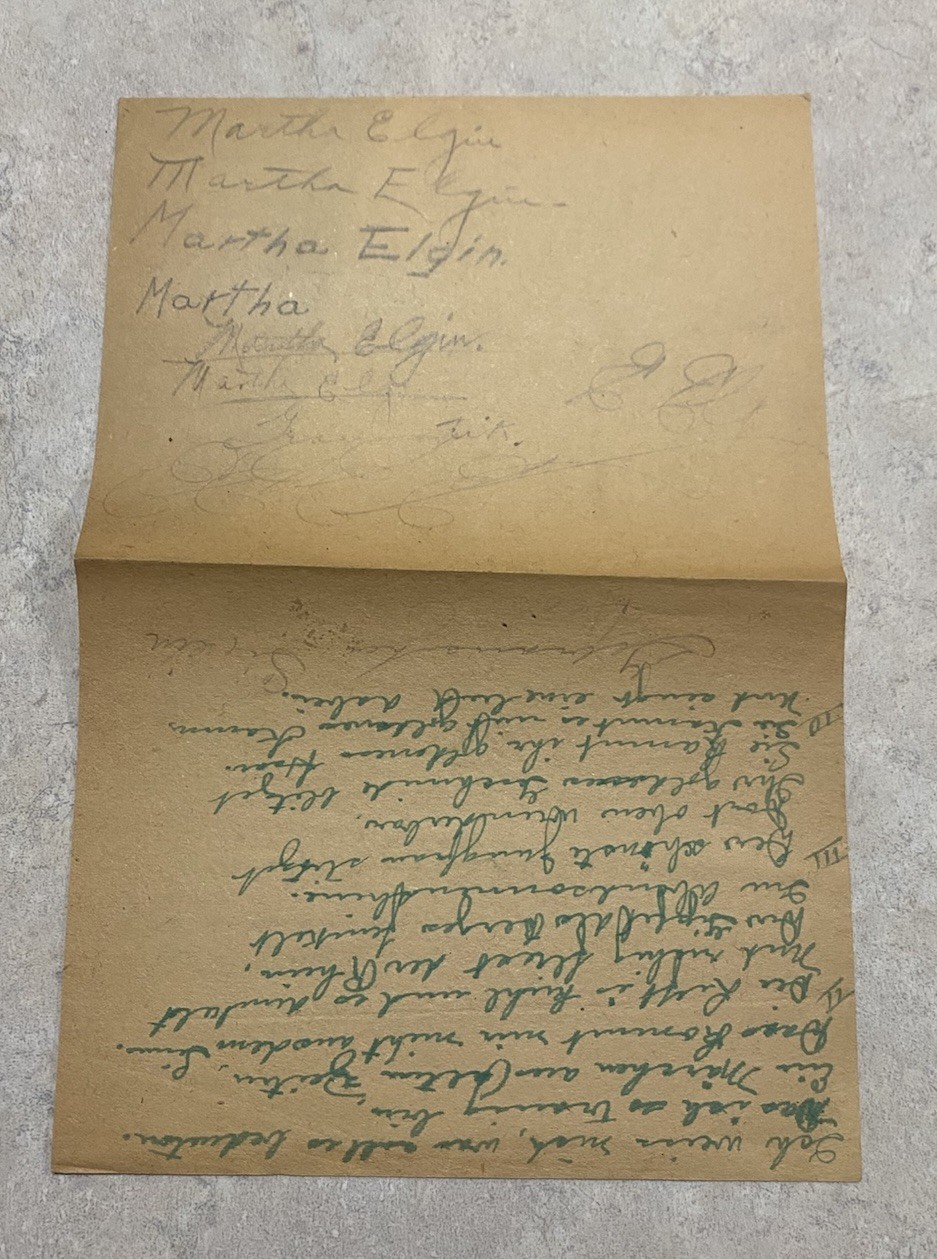 Martha Elgin
Martha Elgin.
Martha Elgin.
Martha
Martha Elgin.
Martha Elgin
E E
Ich weiss nich, was soll es bedeuten.
Das ich so traurig bin,
Ein Märchen aus alten Zeiten,
Dass kommt mir nicht aus dem Sinn.
II
Die Luft is kühl und es dunkelt
Und ruhig fliest der Rhein,
Der Gipfel des Berges funkelt
Im Abendsonnenschein.
III
Der schönste Jungfrau sitzet
Dort oben wunderbar.
Ihr goldenes Geschmeide blitzet
Sie kämmt ihr goldenes Haar.
IIII
Sie kämmt es mit goldenen Kamm
Und singt eine Lied dabei.